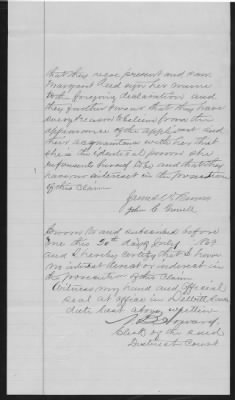 that they were present and saw
Margaret Reed sign her name
to the foregoing declaration and
they further swear that they have
every reason to believe from the
appearance of the applicant and
their acquaintance with her that
she is the identical person she
represents herself to be and that they
have no interest in the prosecution
of this claim
James
John C.
Sworn to and subscribed before
me this 20th day of July
and I hereby certify that I have
no interest direct or indirect in
the prosecution of this claim
Witness my hand and official
seal at office in
date last above written
Clerk of the said
District Court